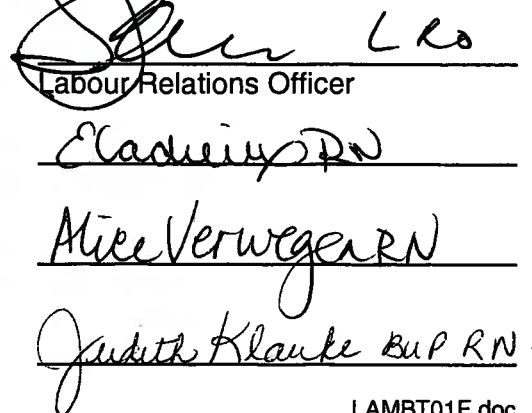 LRO
Labour Relations Officer
RN
Alice Verwegen RN
Judith Klauke BUP RN
LAMBT01F.doc